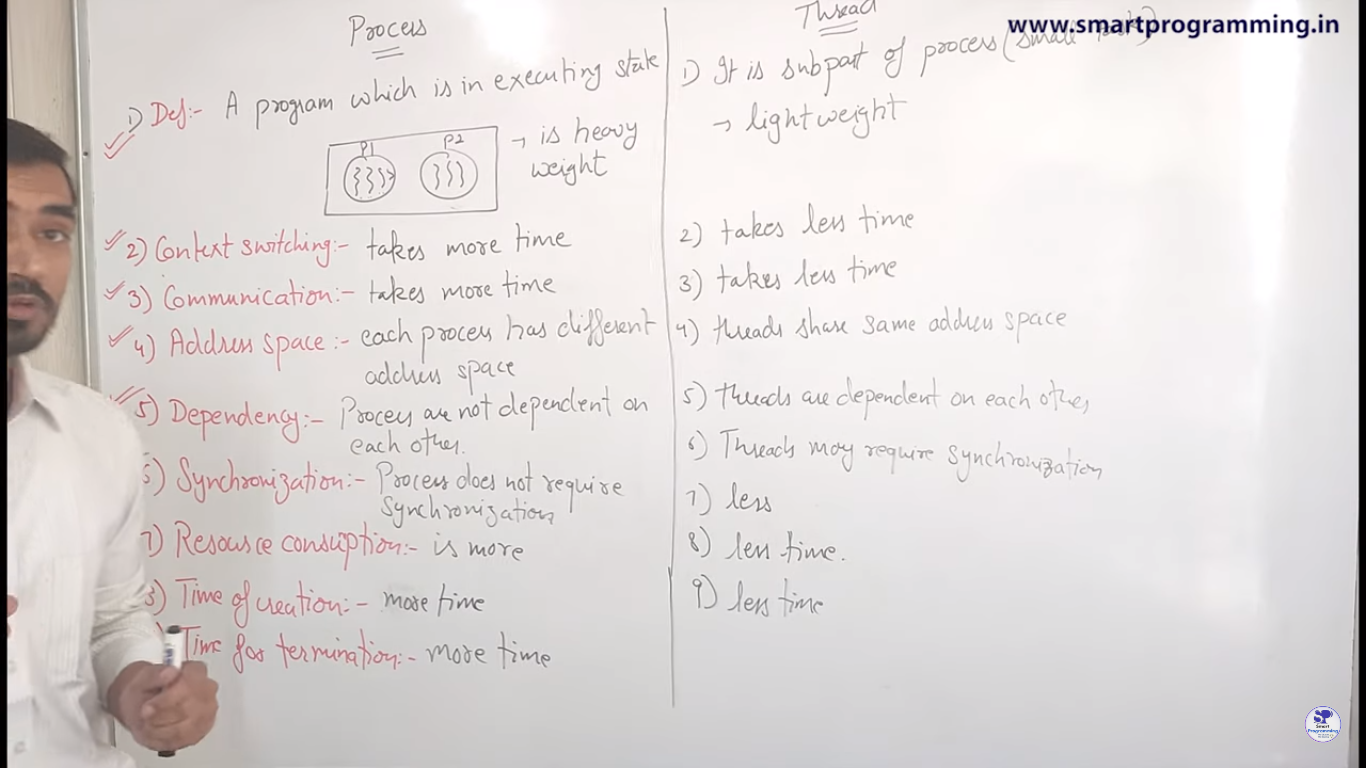 www.smartprogramming.in
Process
1) Def:- A program which is in executing state
P1 P2
→ is heavy
weight
2) Context switching:- takes more time
3) Communication:- takes more time
4) Address space:- each process has different
address space
5) Dependency:- Process are not dependent on
each other.
6) Synchronization:- Process does not require
Synchronization
7) Resource consuption:- is more
8) Time of creation:- more time
Time for termination:- more time
Thread
1) It is subpart of process (small
→ lightweight
2) takes less time
3) takes less time
4) threads share same address space
5) threads are dependent on each other
6) Threads may require synchronization
7) less
8) less time.
9) less time
SP
Smart
Programming